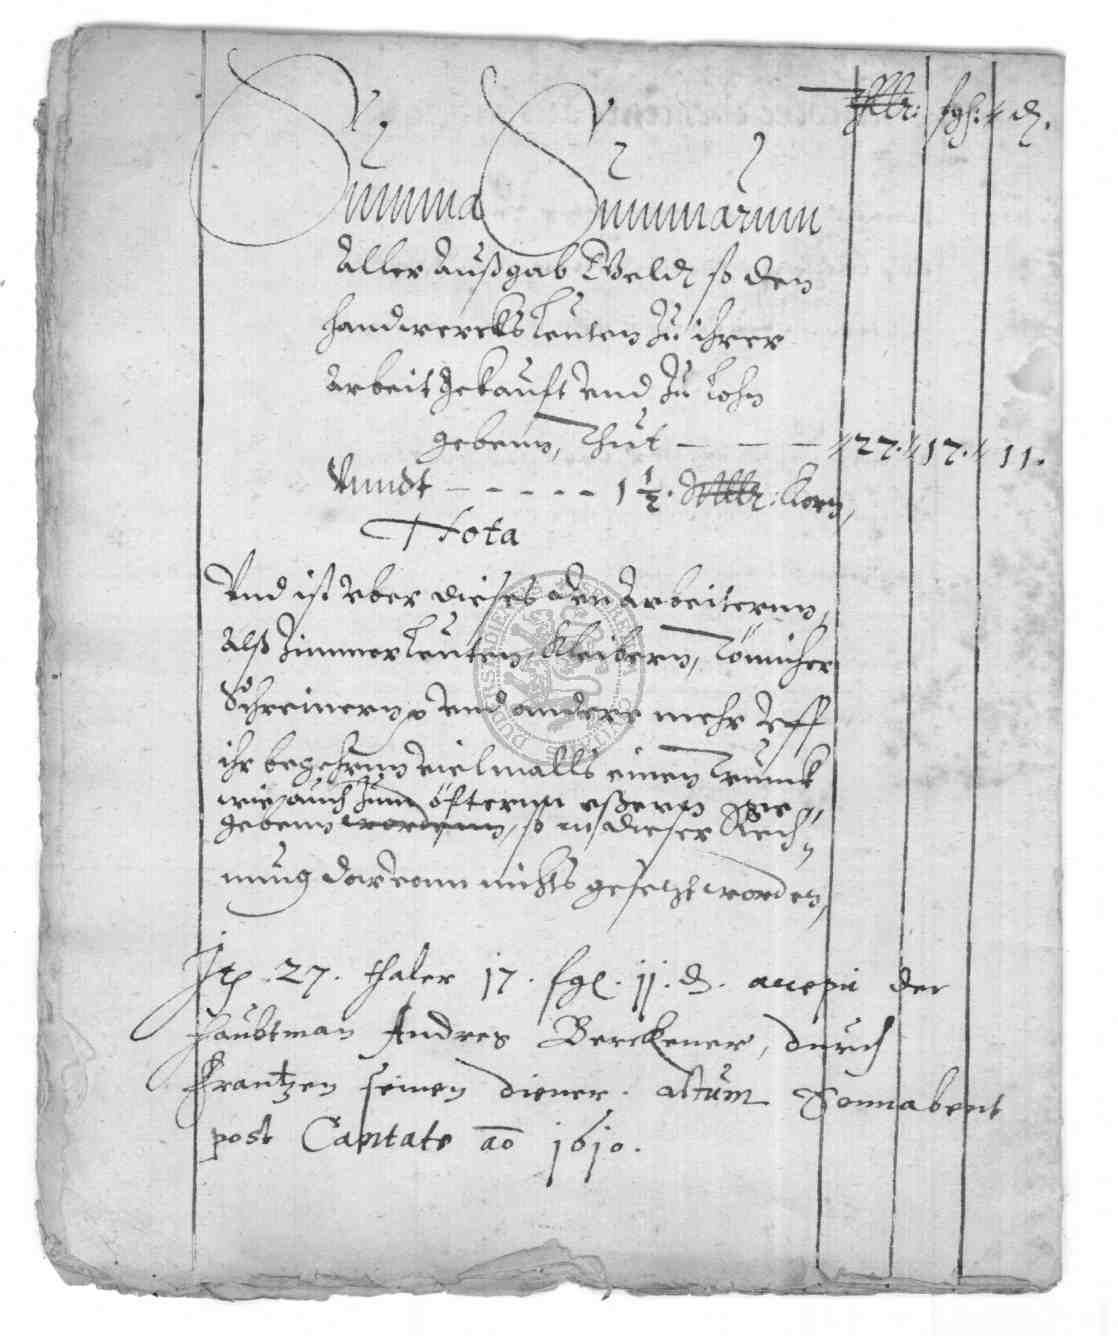 thlr: sgl: ₰.
Summa Summarum
Aller Außgab Geldt so den
handwercks Leuten zu ihrer
Arbeit gekauft vnd zu Lohn
gebenn, Thut — — — 27. 17. 11.
Vnndt - - - - - 1 1/2. Korn,
Nota
Vnd ist aber dieses den Arbeiternn,
Alß Zimmer Leuten, Kleibern, Tönicher
Schreinernn vnd andere mehr vff
ihr begehrnn vielmalls einen Trunnk
wie auch Zum öfternn eßenn ge
gebenn wordenn, so in dieser Rech
nung darvonn nichts gesetzt worden,
27. thaler 17. sgl. 11. ₰. accepit der
Haubtman Andres Berckener, durch
Frantzen seinen diener. actum Sonnabent
post Cantate ao 1610.